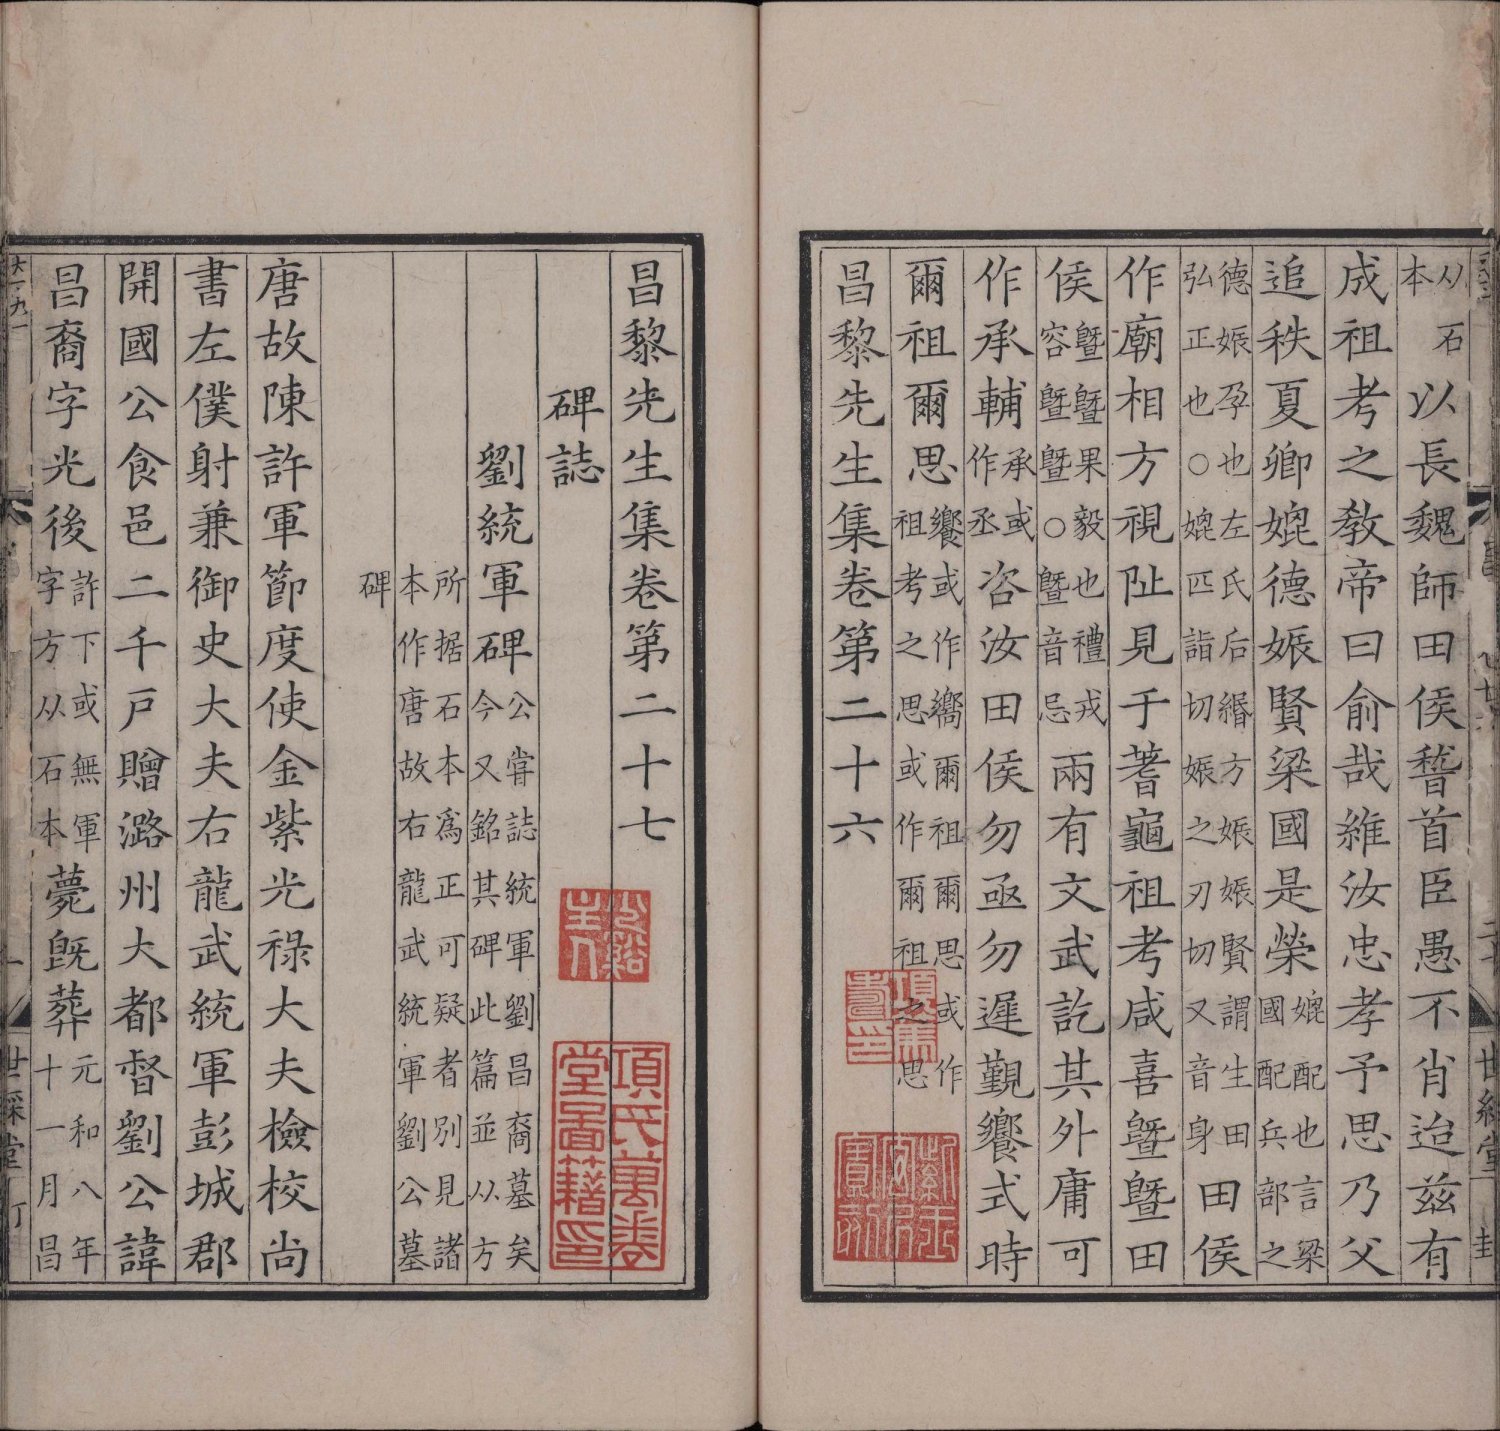 从石本以長魏師田侯稽首臣愚不肖迨兹有
成祖考之教帝曰俞哉維汝忠孝予思乃父
追秩夏卿媲德娠賢梁國是榮媲配也言梁國配兵部之
德娠孕也左氏后緡方娠娠賢謂生田弘正也○媲匹詣切娠之刃切又音身田侯
作廟相方視阯見于蓍龜祖考咸喜曁曁田
侯曁曁果毅也禮戎容曁曁○曁音忌兩有文武訖其外庸可
作承輔承或作丞咨汝田侯勿亟勿遲觐饗式時
爾祖爾思饗或作嚮爾祖爾思或作祖考之思或作爾祖之思
昌黎先生集卷第二十六
昌黎先生集卷第二十七
碑誌
劉統軍碑公嘗誌統軍劉昌裔墓矣今又銘其碑此篇並从方
所据石本爲正可疑者別見諸本作唐故右龍武統軍劉公墓
碑
唐故陳許軍節度使金紫光祿大夫檢校尚
書左僕射兼御史大夫右龍武統軍彭城郡
開國公食邑二千戸贈潞州大都督劉公諱
昌裔字光後許下或無軍字方从石本薨既葬元和八年十一月昌
世綵堂
項氏萬卷堂圖籍印